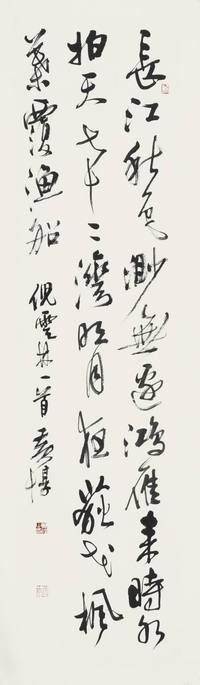 長江秋色渺無邊鴻雁来時水
拍天七十二灣明月夜荻花楓
葉覆漁船
倪雲林一首 黄惇